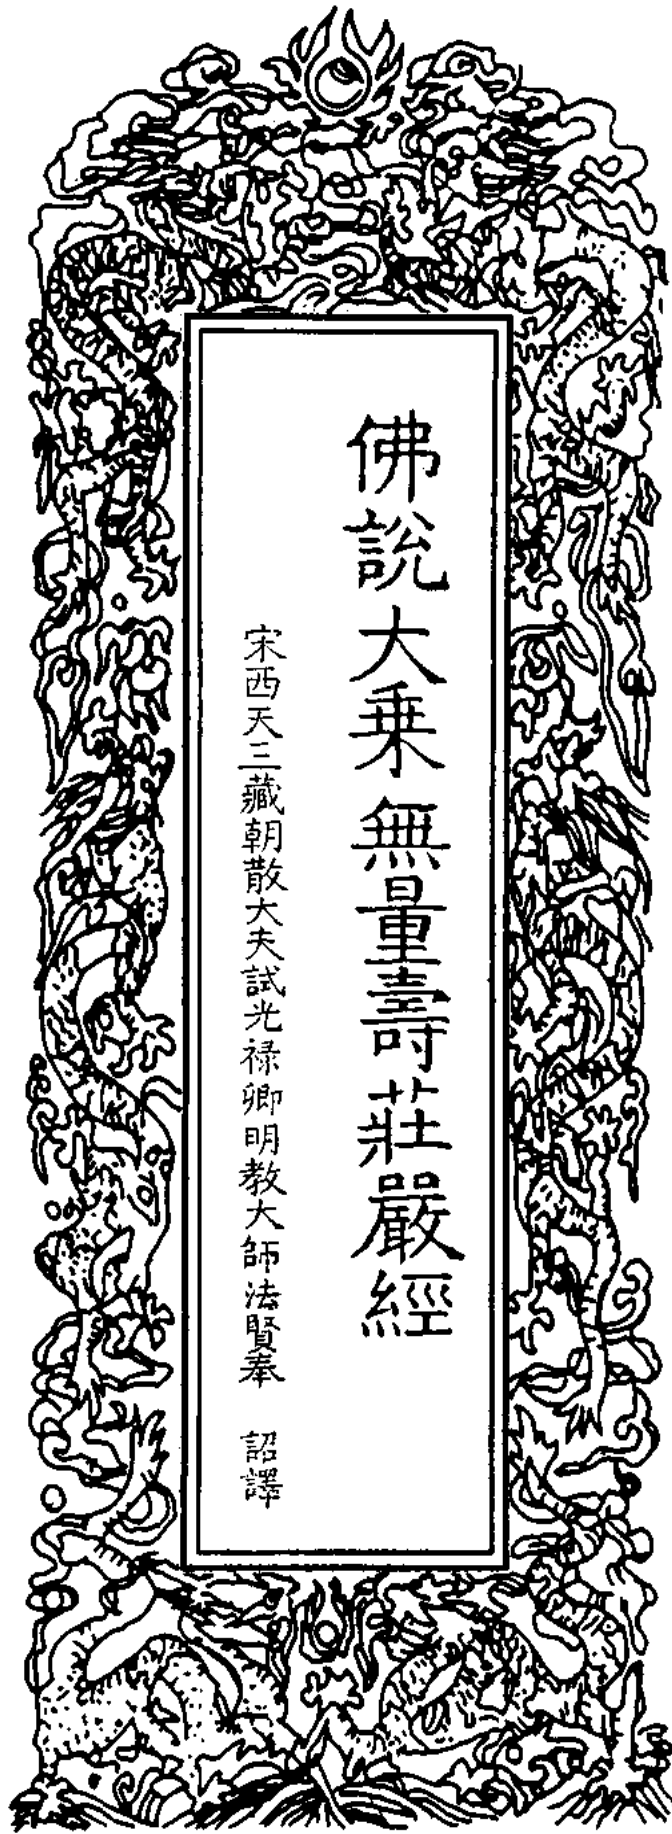 佛說大乗無量壽莊嚴經
宋西天三藏朝散大夫試光禄卿明教大師法賢奉　詔譯